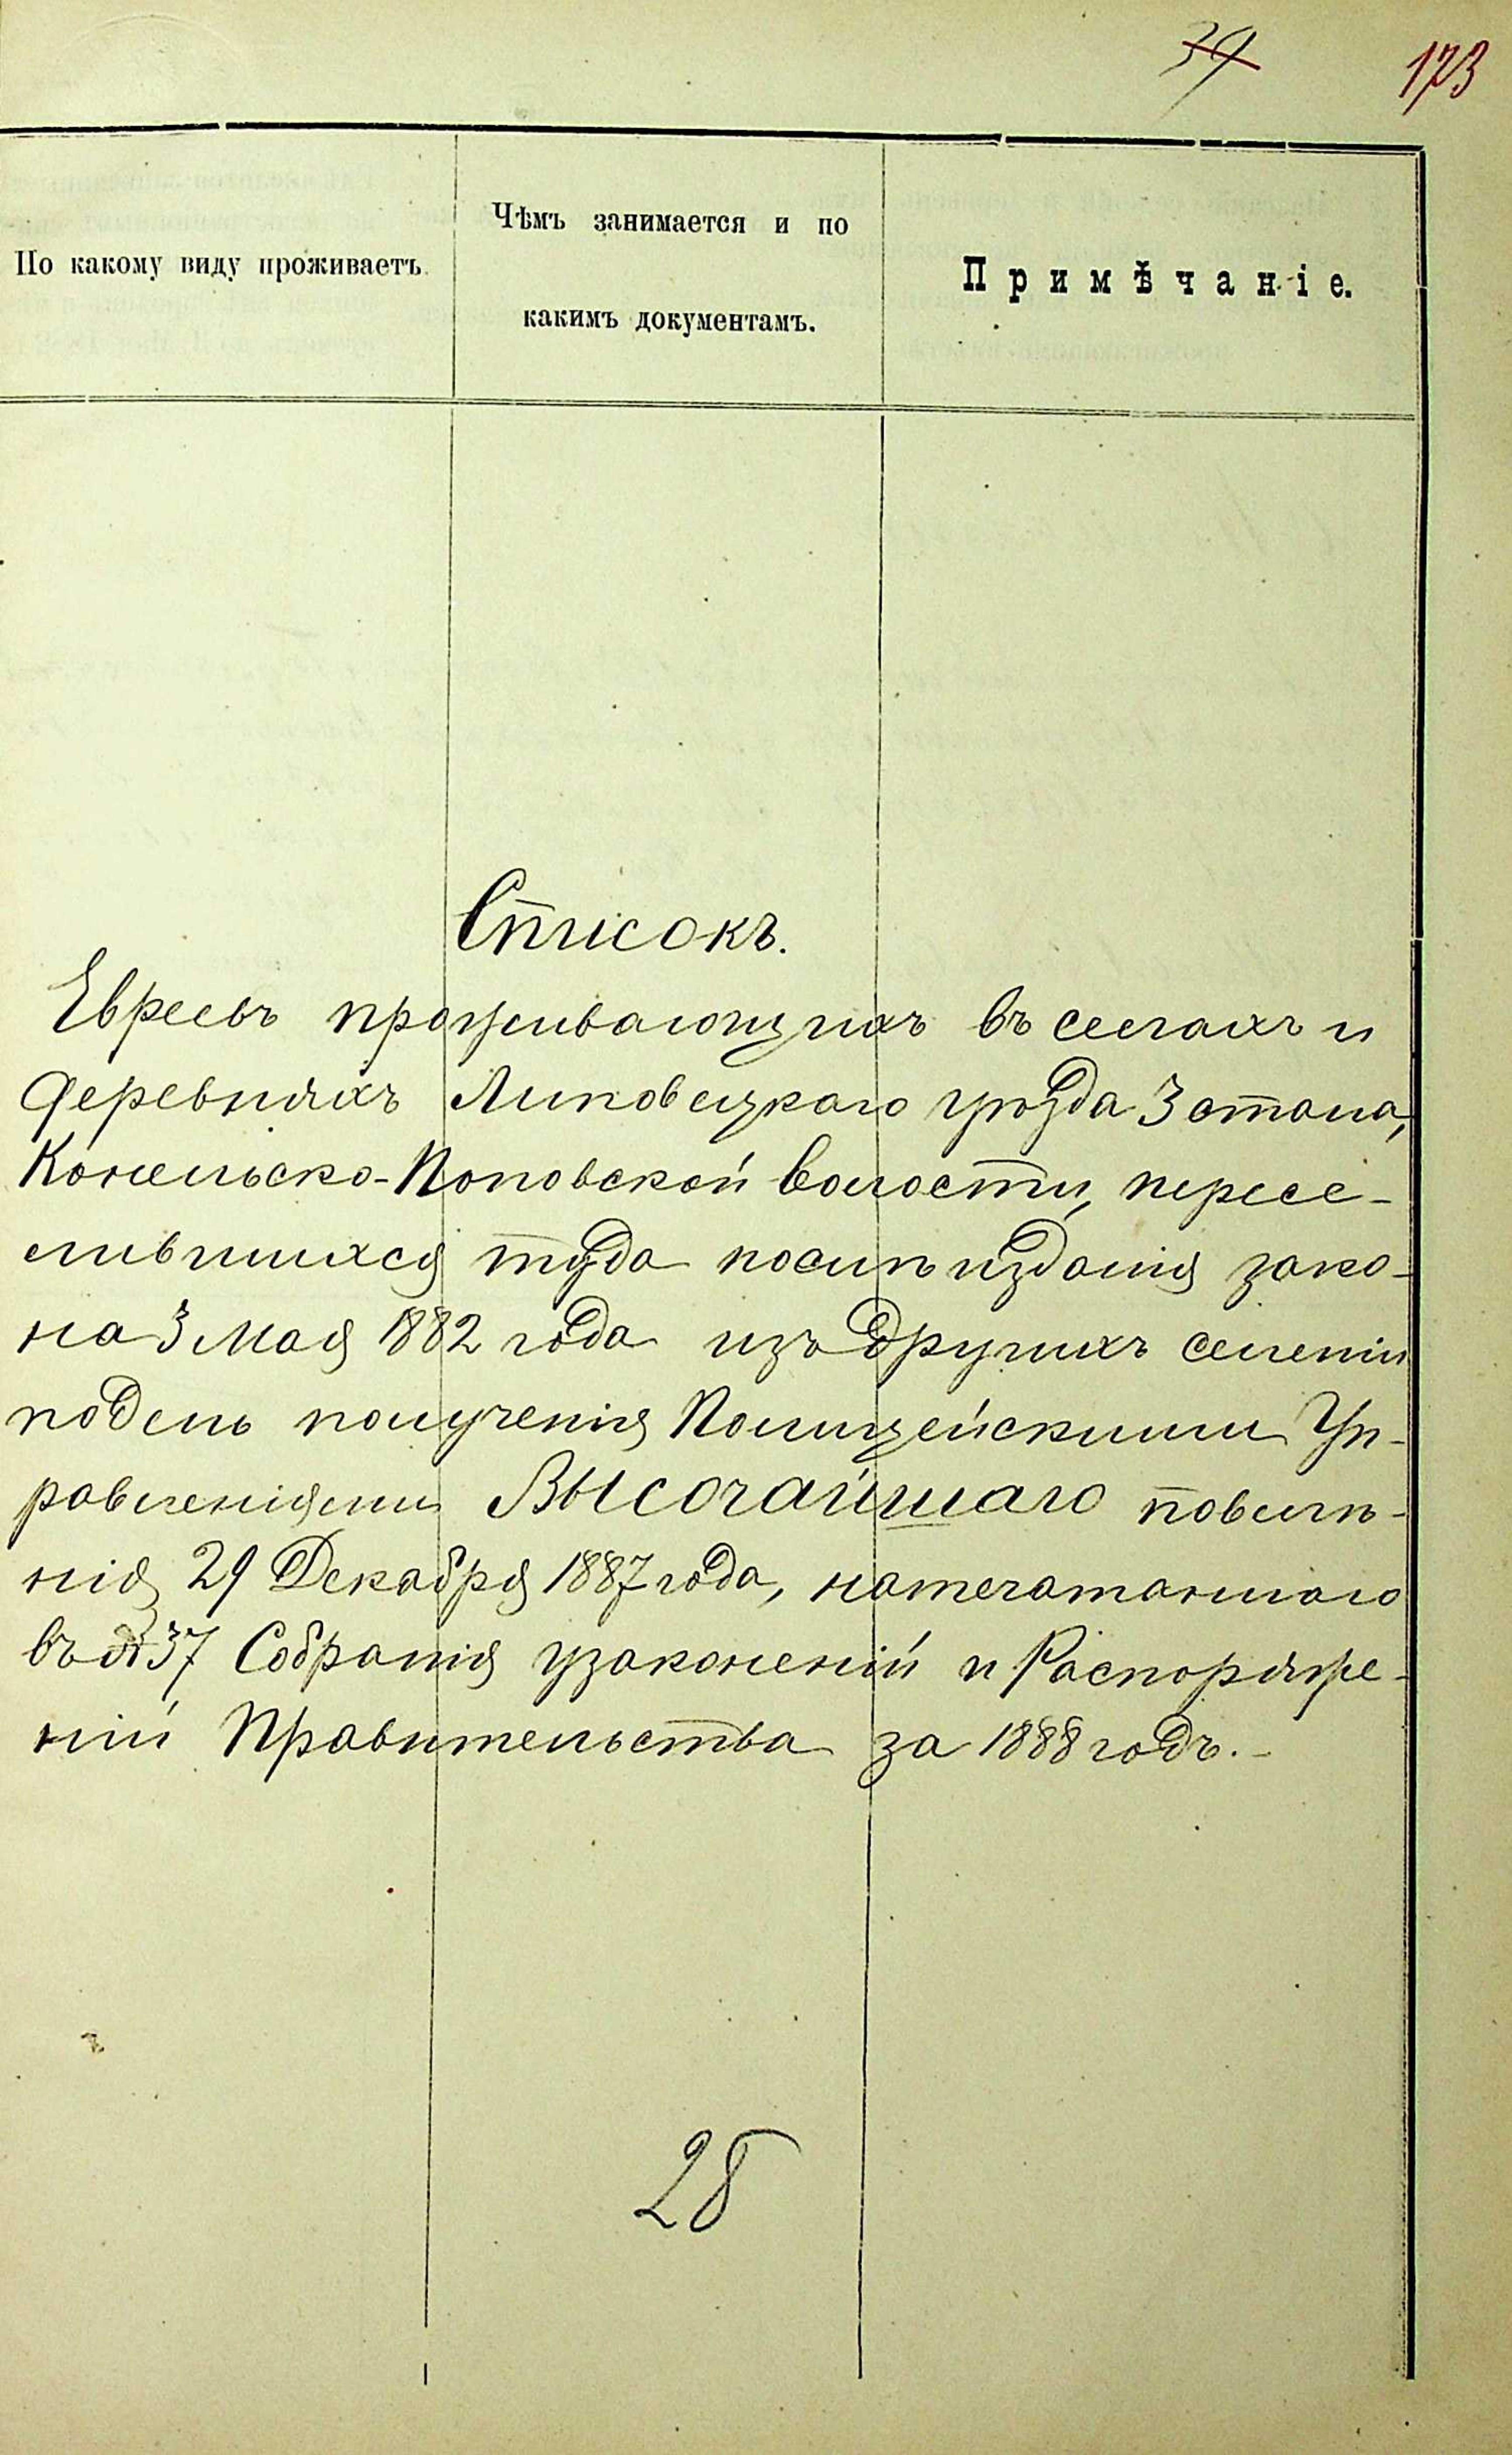 39 173
По какому виду проживаетъ.
Чѣмъ занимается и по
какимъ документамъ.
Примѣчаніе.
Списокъ.
Евреевъ проживающихъ въ селахъ и
деревняхъ Липовецкаго уѣзда 3 стана,
Конельско-Поповской волости, пересе-
лившихся туда послѣ изданія зако-
на 3 Мая 1882 года изъ другихъ селеній
по день полученія Полицейскими Уп-
равленіями Высочайшаго повелѣ-
нія 29 Декабря 1887 года, напечатаннаго
въ № 37 Собранія узаконеній и Распоряже-
ній Правительства за 1888 годъ.-
28